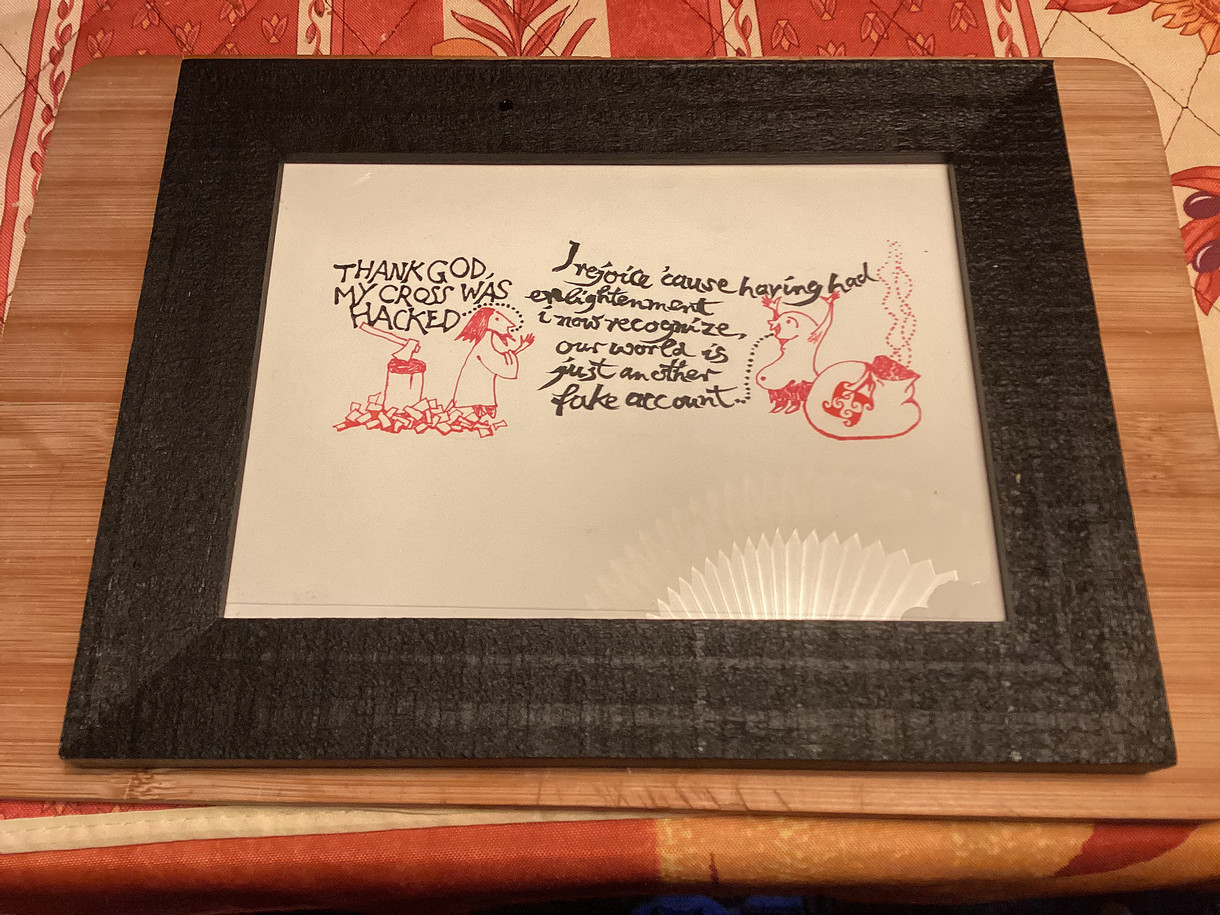 THANK GOD,
MY CROSS WAS
HACKED
I rejoice 'cause having had
enlightenment
i now recognize,
our world is
just another
fake account.